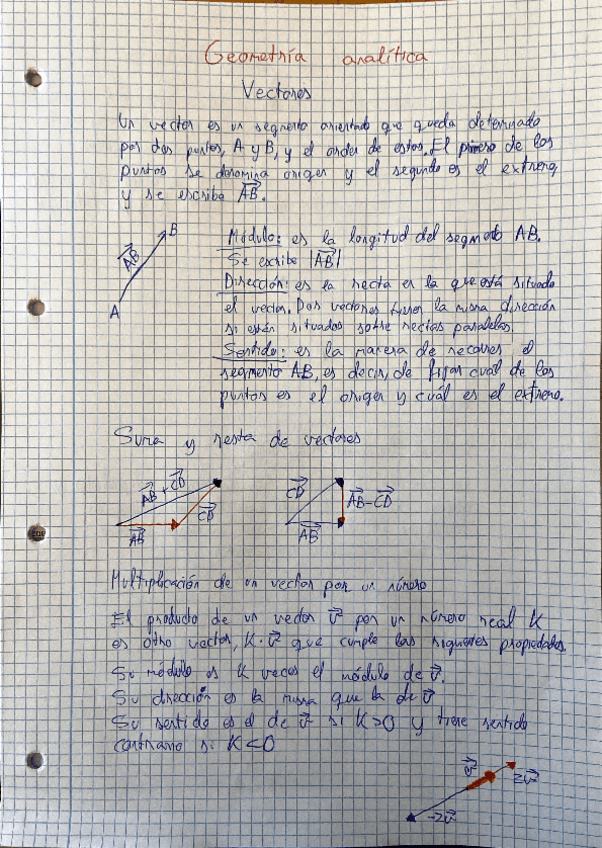 Geometría analítica
Vectores
Un vector es un segmento orientado que queda determinado
por dos puntos, A y B, y el orden de estos. El primero de los
puntos se denomina origen y el segundo es el extremo,
y se escribe AB.
B
AB
A
Módulo: es la longitud del segmento AB.
Se escribe |AB|
Dirección: es la recta en la que está situado
el vector. Dos vectores tienen la misma dirección
si están situados sobre rectas paralelas.
Sentido: es la manera de recorrer el
segmento AB, es decir, de fijar cuál de los
puntos es el origen y cuál es el extremo.
Suma y resta de vectores
AB + CD
CD
AB
CD
AB - CD
AB
Multiplicación de un vector por un número
El producto de un vector v por un número real K
es otro vector, K · v que cumple las siguientes propiedades
Su módulo es K veces el módulo de v.
Su dirección es la misma que la de v
Su sentido es el de v si K>0 y tiene sentido
contrario si K<0
v
2v
-2v